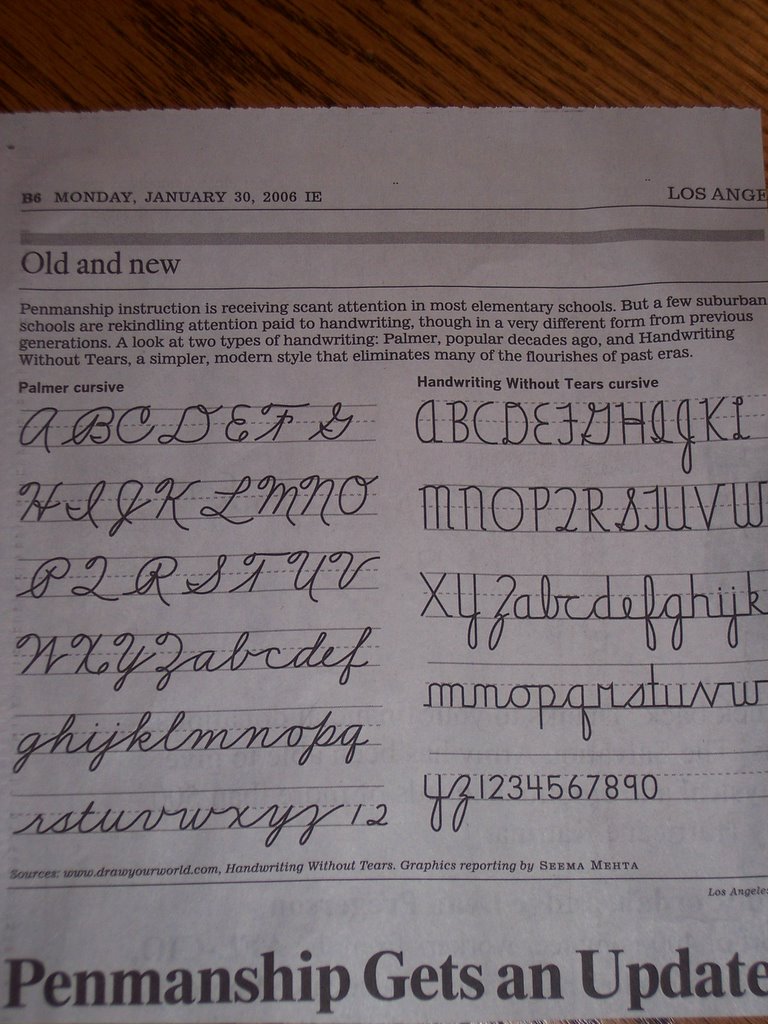 B6 MONDAY, JANUARY 30, 2006 IE
LOS ANGE
Old and new
Penmanship instruction is receiving scant attention in most elementary schools. But a few suburban
schools are rekindling attention paid to handwriting, though in a very different form from previous
generations. A look at two types of handwriting: Palmer, popular decades ago, and Handwriting
Without Tears, a simpler, modern style that eliminates many of the flourishes of past eras.
Palmer cursive
A B C D E F G
H I J K L M N O
P Q R S T U V
W X Y Z a b c d e f
g h i j k l m n o p q
r s t u v w x y z 1 2
Handwriting Without Tears cursive
A B C D E F G H I J K L
M N O P Q R S T U V W
X Y Z a b c d e f g h i j k
m n o p q r s t u v w
y z 1 2 3 4 5 6 7 8 9 0
Sources: www.drawyourworld.com, Handwriting Without Tears. Graphics reporting by SEEMA MEHTA
Los Angeles
Penmanship Gets an Update